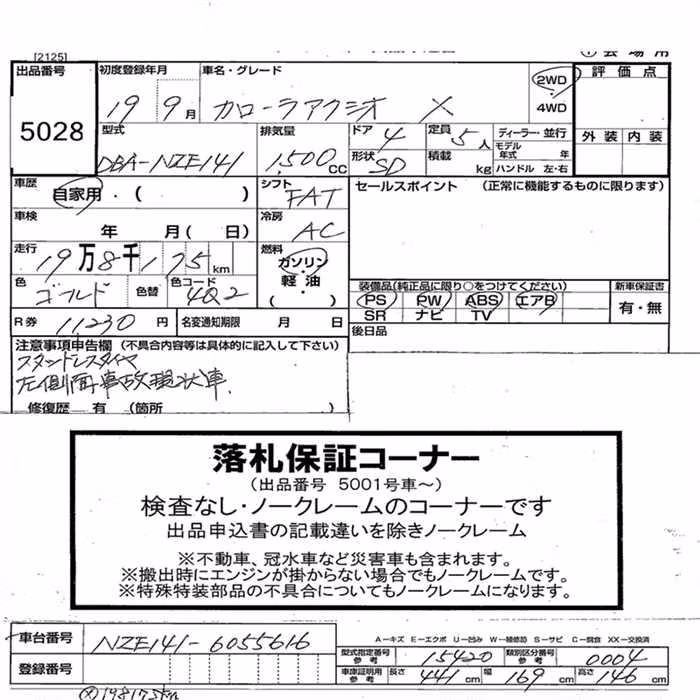 [2125]
出品番号 5028
初度登録年月 19 9月
車名・グレード カローラアクシオ X
2WD
4WD
評価点
外装 内装
型式 DBA-NZE141
排気量 1,500CC
ドア 4
定員 5人
形状 SD
積載 kg
ディーラー・並行
モデル年式 年
ハンドル 左・右
車歴 自家用・( )
シフト FAT
セールスポイント (正常に機能するものに限ります)
車検 年 月( 日)
冷房 AC
走行 19万8千175km
燃料 ガソリン・軽油・( )
色 ゴールド
色替
色コード 4Q2
装備品(純正品に限り○をつけてください)
PS PW ABS エアB
SR ナビ TV
新車保証書
有・無
R券 11,230円
名変通知期限 月 日
後日品
注意事項申告欄 (不具合内容等は具体的に記入して下さい)
スタッドレスタイヤ
左側面事故現状車.
修復歴 有 (箇所 )
落札保証コーナー
(出品番号 5001号車~)
検査なし・ノークレームのコーナーです
出品申込書の記載違いを除きノークレーム
※不動車、冠水車など災害車も含まれます。
※搬出時にエンジンが掛からない場合でもノークレームです。
※特殊特装部品の不具合についてもノークレームになります。
車台番号 NZE141-6055616
登録番号
A-キズ E-エクボ U-凹み W-補修跡 S-サビ C-腐食 XX-交換済
型式指定番号 参考 15420
類別区分番号 参考 0004
車庫証明用 参考 長さ 441cm 幅 169cm 高さ 146cm
198175km